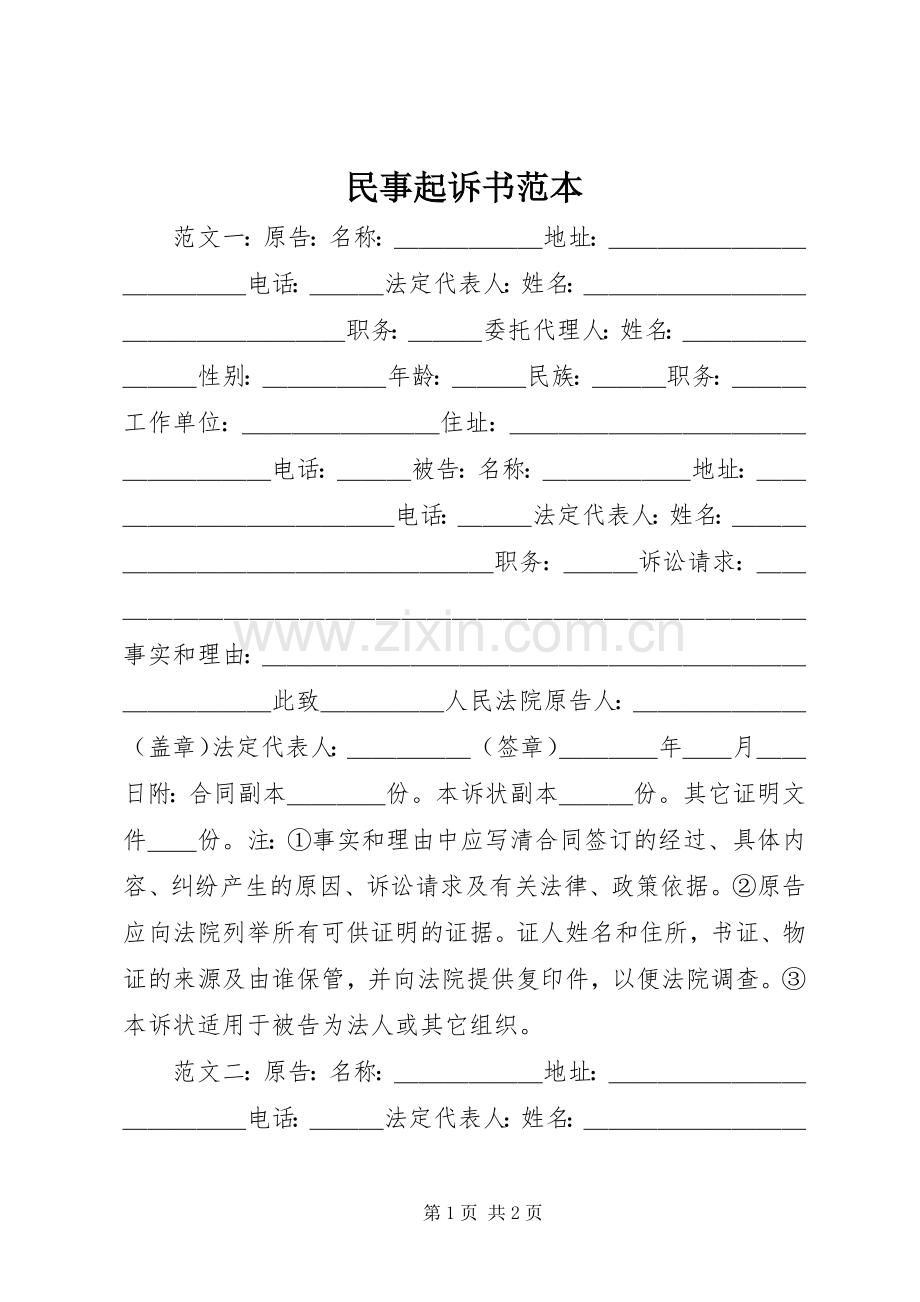 民事起诉书范本
范文一：原告：名称：____________地址：________________
__________电话：______法定代表人：姓名：__________________
__________________职务：______委托代理人：姓名：__________
______性别：__________年龄：______民族：______职务：______
工作单位：________________住址：________________________
____________电话：______被告：名称：____________地址：____
______________________电话：______法定代表人：姓名：______
______________________________职务：______诉讼请求：____
________________________________________________________
www.zixin.com.cn
事实和理由：____________________________________________
____________此致__________人民法院原告人：______________
（盖章）法定代表人：__________（签章）________年____月____
日附：合同副本________份。本诉状副本______份。其它证明文
件____份。注：①事实和理由中应写清合同签订的经过、具体内
容、纠纷产生的原因、诉讼请求及有关法律、政策依据。②原告
应向法院列举所有可供证明的证据。证人姓名和住所，书证、物
证的来源及由谁保管，并向法院提供复印件，以便法院调查。③
本诉状适用于被告为法人或其它组织。
范文二：原告：名称：____________地址：________________
__________电话：______法定代表人：姓名：__________________
第 1 页 共 2 页